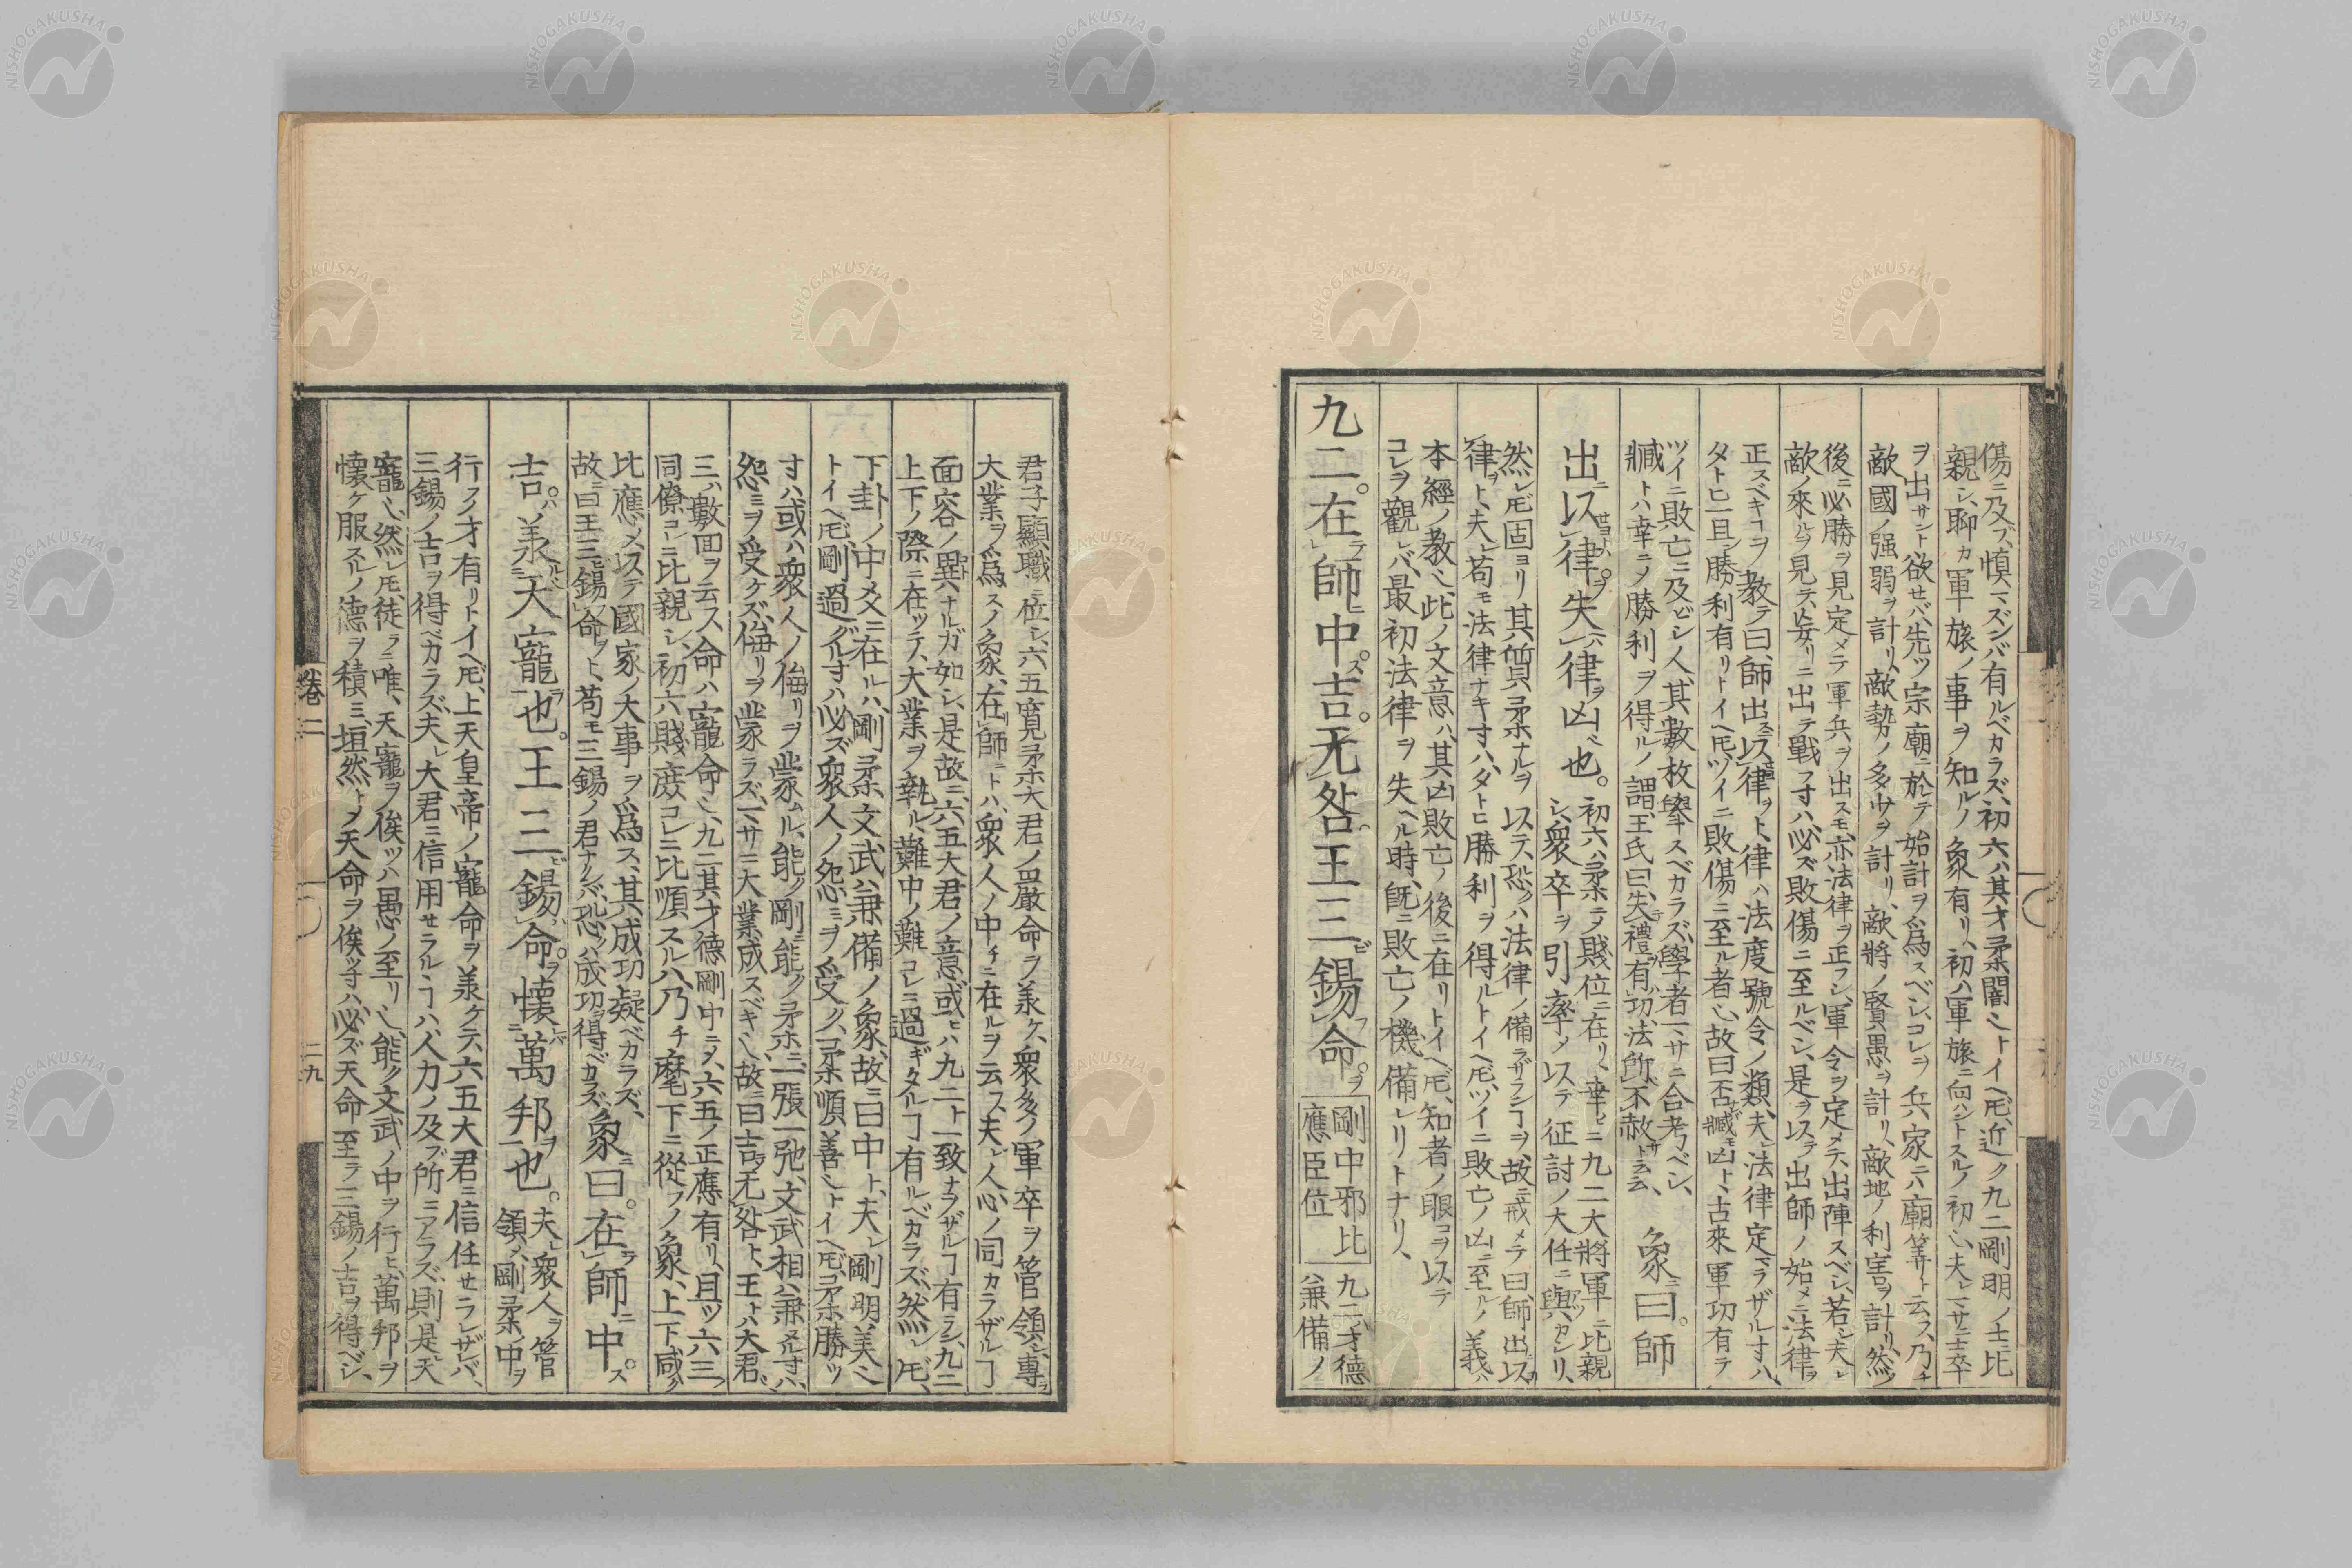 傷ニ及ブ、慎マズンバ有ルベカラズ、初六ハ其才柔闇ヘトイヘ𪜈、近ク九二剛明ノ士ニ比
親シ、聊カ軍旅ノ事ヲ知ルノ象有リ、初ハ軍旅ニ向ハントスルノ初心、夫レ一サニ士卒
ヲ出サント欲セバ、先ツ宗廟ニ於テ始計ヲ爲スベシ、コレヲ兵家ニ廟筭ト云ス、乃チ
敵國ノ强弱ヲ計リ、敵勢ノ多少ヲ計リ、敵將ノ賢愚ヲ計リ、敵地ノ利害ヲ計リ、然ノ
後ニ必勝ヲ見定メテ軍兵ヲ出スモ、亦法律ヲ正フシ、軍令ヲ定メテ、出陣スベシ、若シ夫レ
敵ノ來ルヲ見テ、妄リニ出テ戰フ寸ハ、必ズ敗傷ニ至ルベシ、是ヲ以テ出師ノ始メニ法律ヲ
正スベキヿヲ教テ曰、師出ニ以律ヲト、律ハ法度號令ノ類、夫レ法律定マラザル寸ハ、
タトヒ且ノ勝利有リトイヘ𪜈、ツイニ敗傷ニ至ル者心、故曰否臧モ凶ト、古來軍功有テ
ツイニ敗亡ニ及ビシ人、其數枚擧スベカラズ、學者一サニ合考ベシ、
臧トハ幸ニノ勝利ヲ得ルノ謂、王氏曰、失禮有功、法所不赦ト云云、 象ニ曰。師
出ニ以律。失律凶也。 初六ハ柔ニテ賤位ニ在リ、幸ヒニ九二大將軍ニ比親
シ、衆卒ヲ引率メ以テ征討ノ大任ニ與カシリ、
然レ𪜈固ヨリ其質柔ナルヲ以テ、恐クハ法律ノ備ラザランヿヲ、故ニ戒メテ曰、師出以
律ヲト、夫レ苟モ法律ナキ寸ハ、タトヒ勝利ヲ得ルトイヘ𪜈、ツイニ敗亡ノ凶ニ至ルノ義、
本經ノ教心、此ノ文意ハ、其凶敗亡ノ後ニ在リトイヘ𪜈、知者ノ眼コヲ以テ
コレヲ觀レバ、最初法律ヲ失ヘル時、旣ニ敗亡ノ機備レリトナリ、
九二。在師ニ中ス。吉。无咎。王三ビ錫命ヲ。 剛中邪比 九二ハ才德
應臣位 ハ兼備ノ
君子顯職ニ位シ、六五寛柔大君ノ嚴命ヲ羕ケ、衆多ノ軍卒ヲ管領シ、專ラ
大業ヲ爲スノ象、在師ニトハ、衆人ノ中チニ在ルヲ云ス、夫レ人心ノ同カラザルヿ
面容ノ異ナルガ如シ、是故ニ六五大君ノ意或ヒハ九二ト一致ナラザルヿ有ラン、九二
上下ノ際ニ在ツテ、大業ヲ執ル、難中ノ難コレニ過ギタルヿ有ルベカラズ、然レ𪜈、
下卦ノ中爻ニ在ルハ、剛柔文武ハ兼備ノ象、故ニ曰中ト、夫レ剛明美ヘ
トイヘ𪜈、剛過グル寸ハ必ズ衆人ノ怨ミヲ受ク、柔順善シトイヘ𪜈、柔勝ツ
寸ハ或ハ衆人ノ侮リヲ蒙ムル、能ク剛ニ能ク柔ニ、一張一弛、文武相ハ兼ヌル寸ハ、
怨ミヲ受ケズ、侮リヲ蒙ラズ、一サニ大業成スベキ心、故ニ曰吉无咎ト、王トハ大君、
三ハ數回ヲ云ス、命ハ寵命心、九二其才德剛中ニノ、六五ノ正應有リ、且ツ六三ノ
同僚コレニ比親シ、初六賤庶コレニ比順スル八、乃チ麾下ニ從フノ象、上下咸ク
比應メ以テ國家ノ大事ヲ爲ス、其成功疑ベカラズ、
故ニ曰王三錫命ヲト、苟モ三錫ノ君ナクンバ、恐クハ成功ヲ得ベカラズ、 象ニ曰。在師ニ中ス。
吉。羕天寵也。王三錫命。懷萬邦也。 夫レ衆人ヲ管
領メ、剛柔ノ中ヲ
行フノ才有リトイヘ𪜈、上天皇帝ノ寵命ヲ羕ケテ、六五大君ニ信任セラレザレバ、
三錫ノ吉ヲ得ベカラズ、夫レ大君ニ信用セラルヽヿハ、人力ノ及ブ所ニアラズ、則是天
寵心、然レ𪜈、徒ラニ唯、天寵ヲ俟ツハ愚ノ至リ心、能ク文武ノ中ヲ行ヒ、萬邦ヲ
懷ケ服スルノ德ヲ積ミ、坦然トノ天命ヲ俟ツ寸ハ、必ズ天命至ラ三錫ノ吉ヲ得ベシ、
卷二
二九